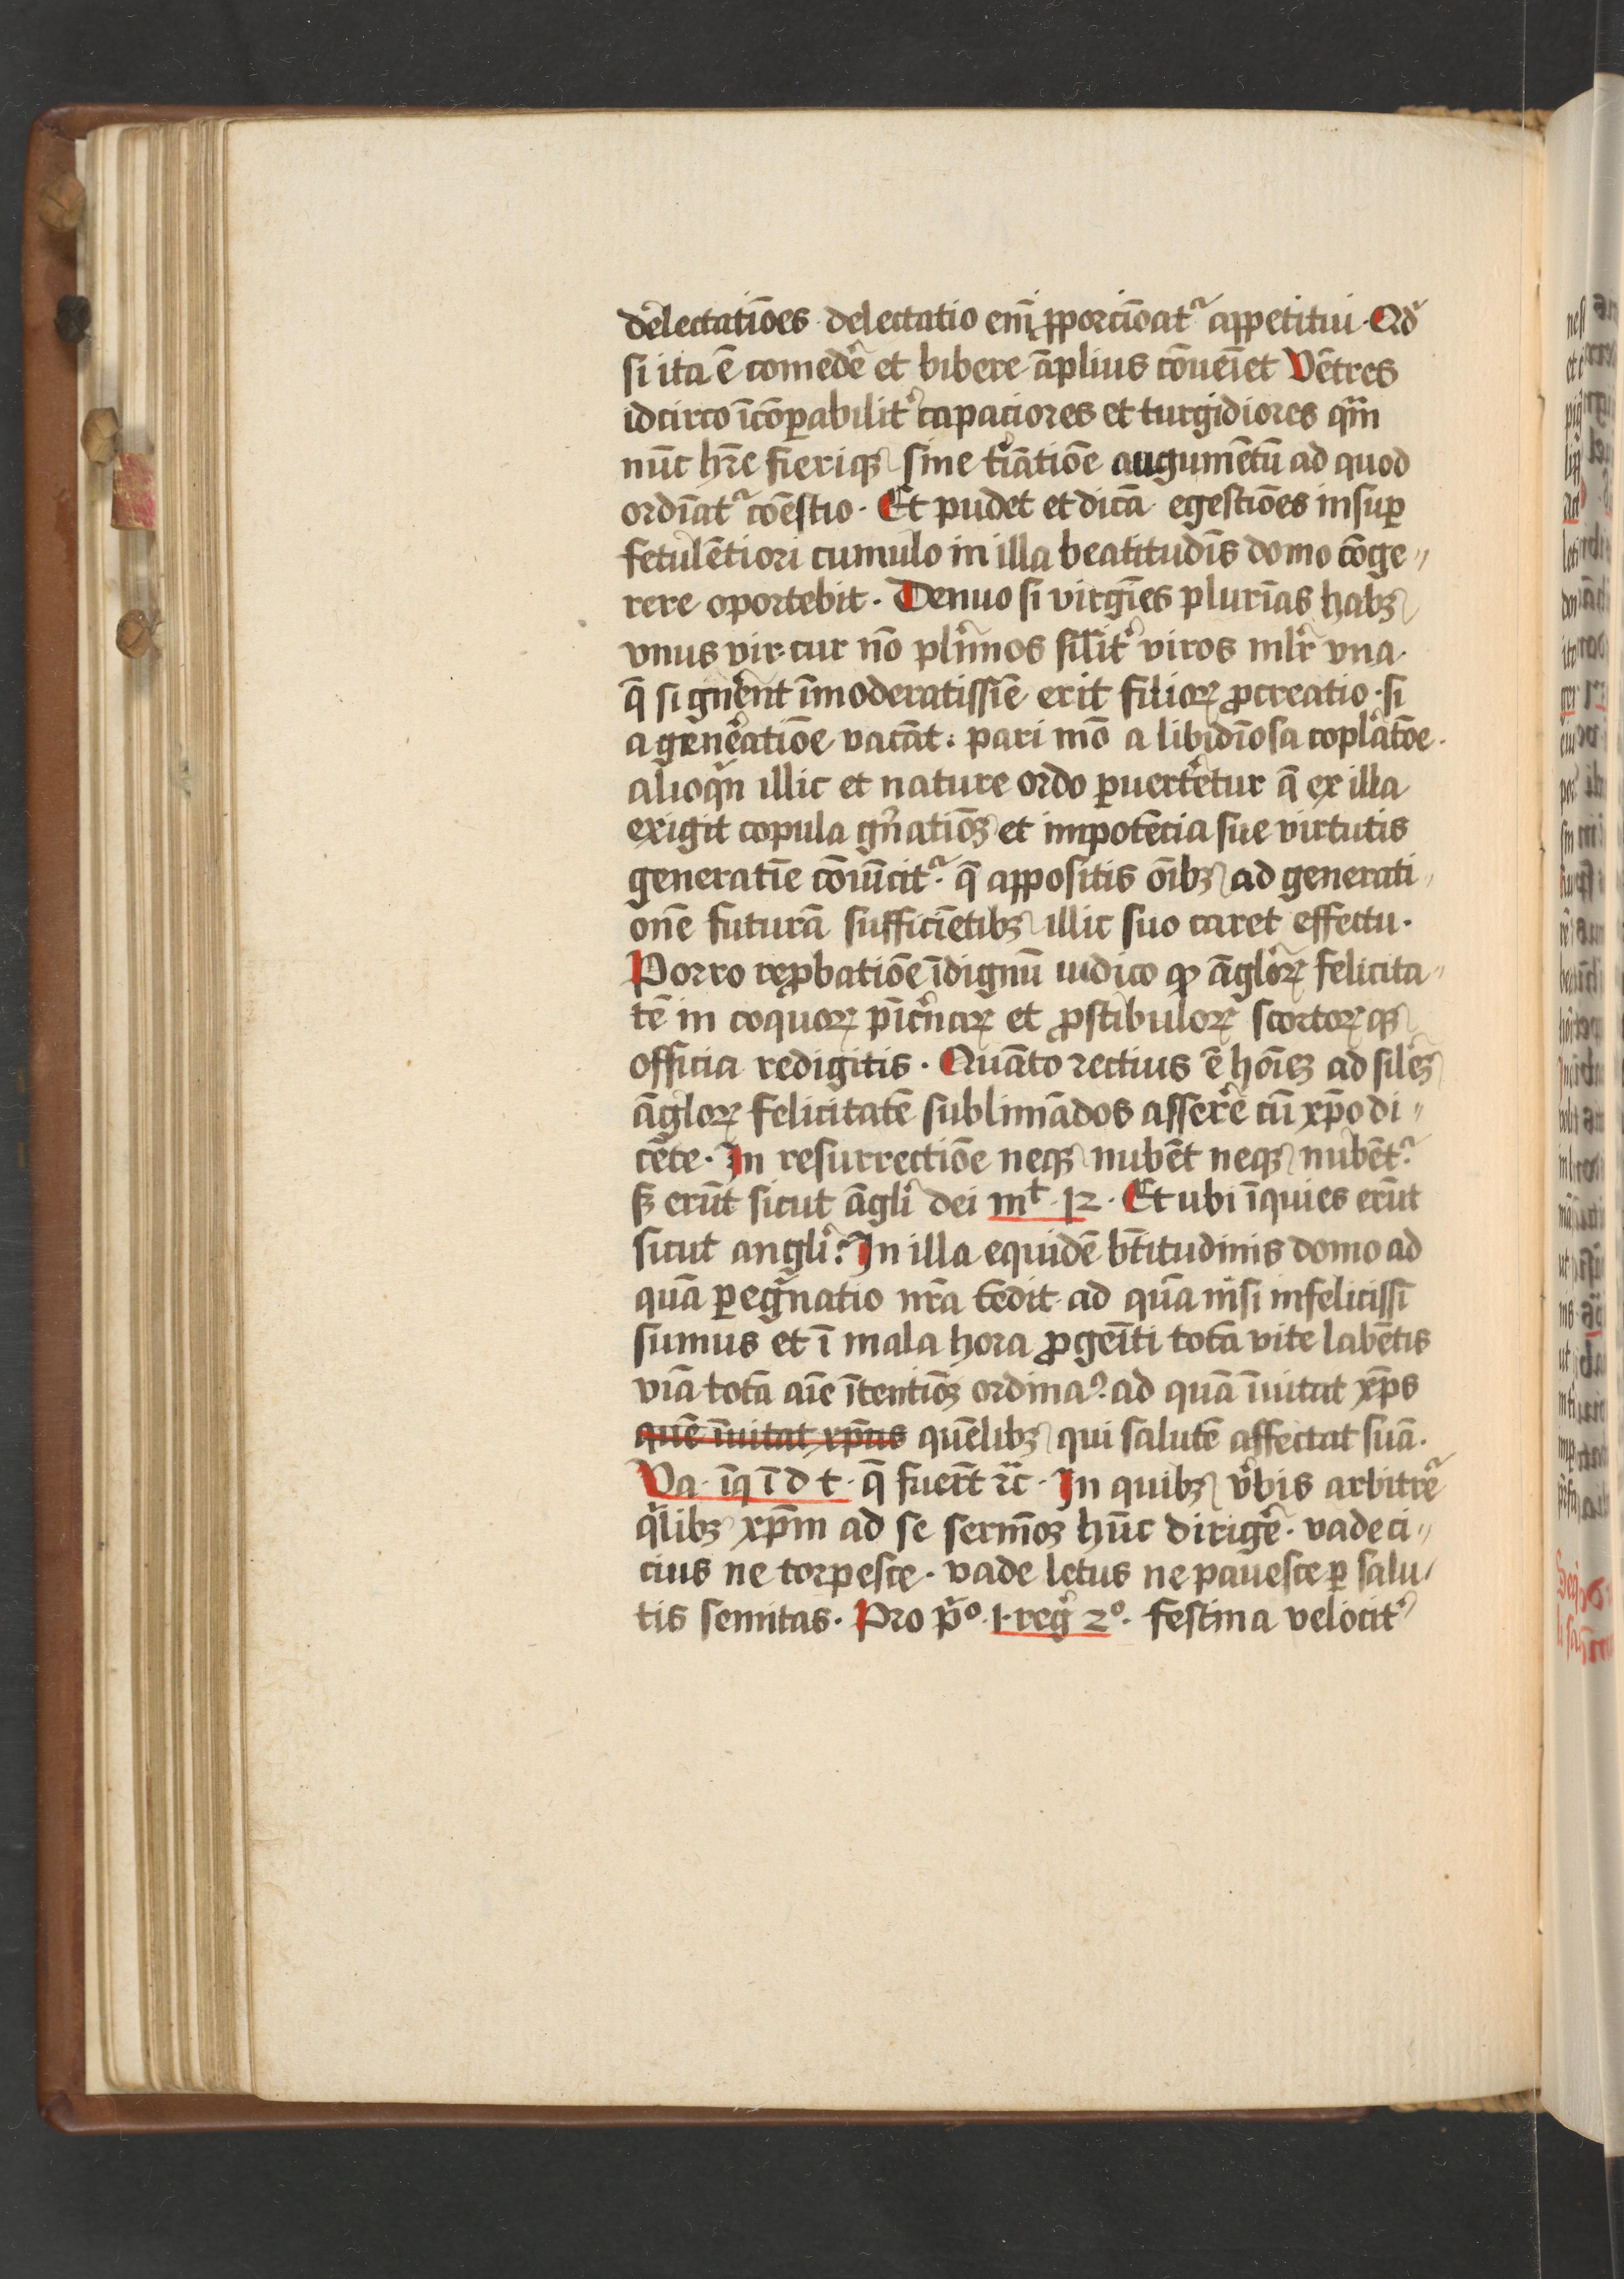 delectatiōes delectatio em̄ ꝓporciōatᷣ appetitui · Qđ
si ita ē comedē et bibere āplius cōueīet Vētres
idcirco īcōꝑabilitᷣ capaciores et turgidiores qm̄
nūc hr̄e fieriqꝫ sine tᷣiatiōe augumētū ad quod
ordīatᷣ cōestio · Et pudet et dicā egestiōes insuꝑ
fetulētiori cumulo in illa beatitudīs domo cōge〃
rere oportebit · Denuo si virgīes plurīas habꝫ
vnus vir cur nō plīmos sił̄itᷣ viros mlr̄ vna ·
q̄ si gn̄ent īmoderatissīe erit filioꝝ ꝓcreatio · si
a gen̄eatiōe vacāt : pari mō a libidīosa coplatōe ·
alioqn̄ illic et nature ordo ꝑuertētur q̄ ex illa
exigit copula gn̄atiōꝫ et impotēcia sue virtutis
generatīe cōiūcitᷣ · q̄ appositis oībꝫ ad generati〃
onē futurā sufficiētibꝫ illic suo caret effectu ·
Porro reꝓbatiōe īdignū iudico ꝙ āgloꝝ felicita〃
tē in coquoꝝ pīcn̄aꝝ et ꝓstibuloꝝ scortoꝝqꝫ
officia redigitis · Quāto rectius ē hoīeꝫ ad silēꝫ
āgloꝝ felicitatē sublimādos asserē cū xp̄o di〃
cēte · In resurrectiōe neqꝫ nubēt neqꝫ nubētᷣ
sꝫ erūt sicut āgli dei mᵗ · 12 · Et ubi īquies erūt
sicut angli ? In illa equidē bt̄itudinis domo ad
quā ꝑegn̄atio nr̄a tēdit · ad quā nisi infelicissī
sumus et ī mala hora ꝓgeīti totā vite labētis
viā totā aīe ītentiōꝫ ordinaᷣ · ad quā īuitat xp̄s
quē īuitat xp̄us quēlibꝫ qui salutē affectat suā ·
Va · īq ī d t · q̄ fuerīt ⁊c̄ · In quibꝫ v̄bis arbitrē
qᷣlibꝫ xp̄m ad se sermōꝫ hūc dirigē · vade ci〃
cius ne torpesce · vade letus ne pauesce ꝑ salu〃
tis semitas · Pro pᷣº · 1 · reg̉ 2º · festina velocitᷣ